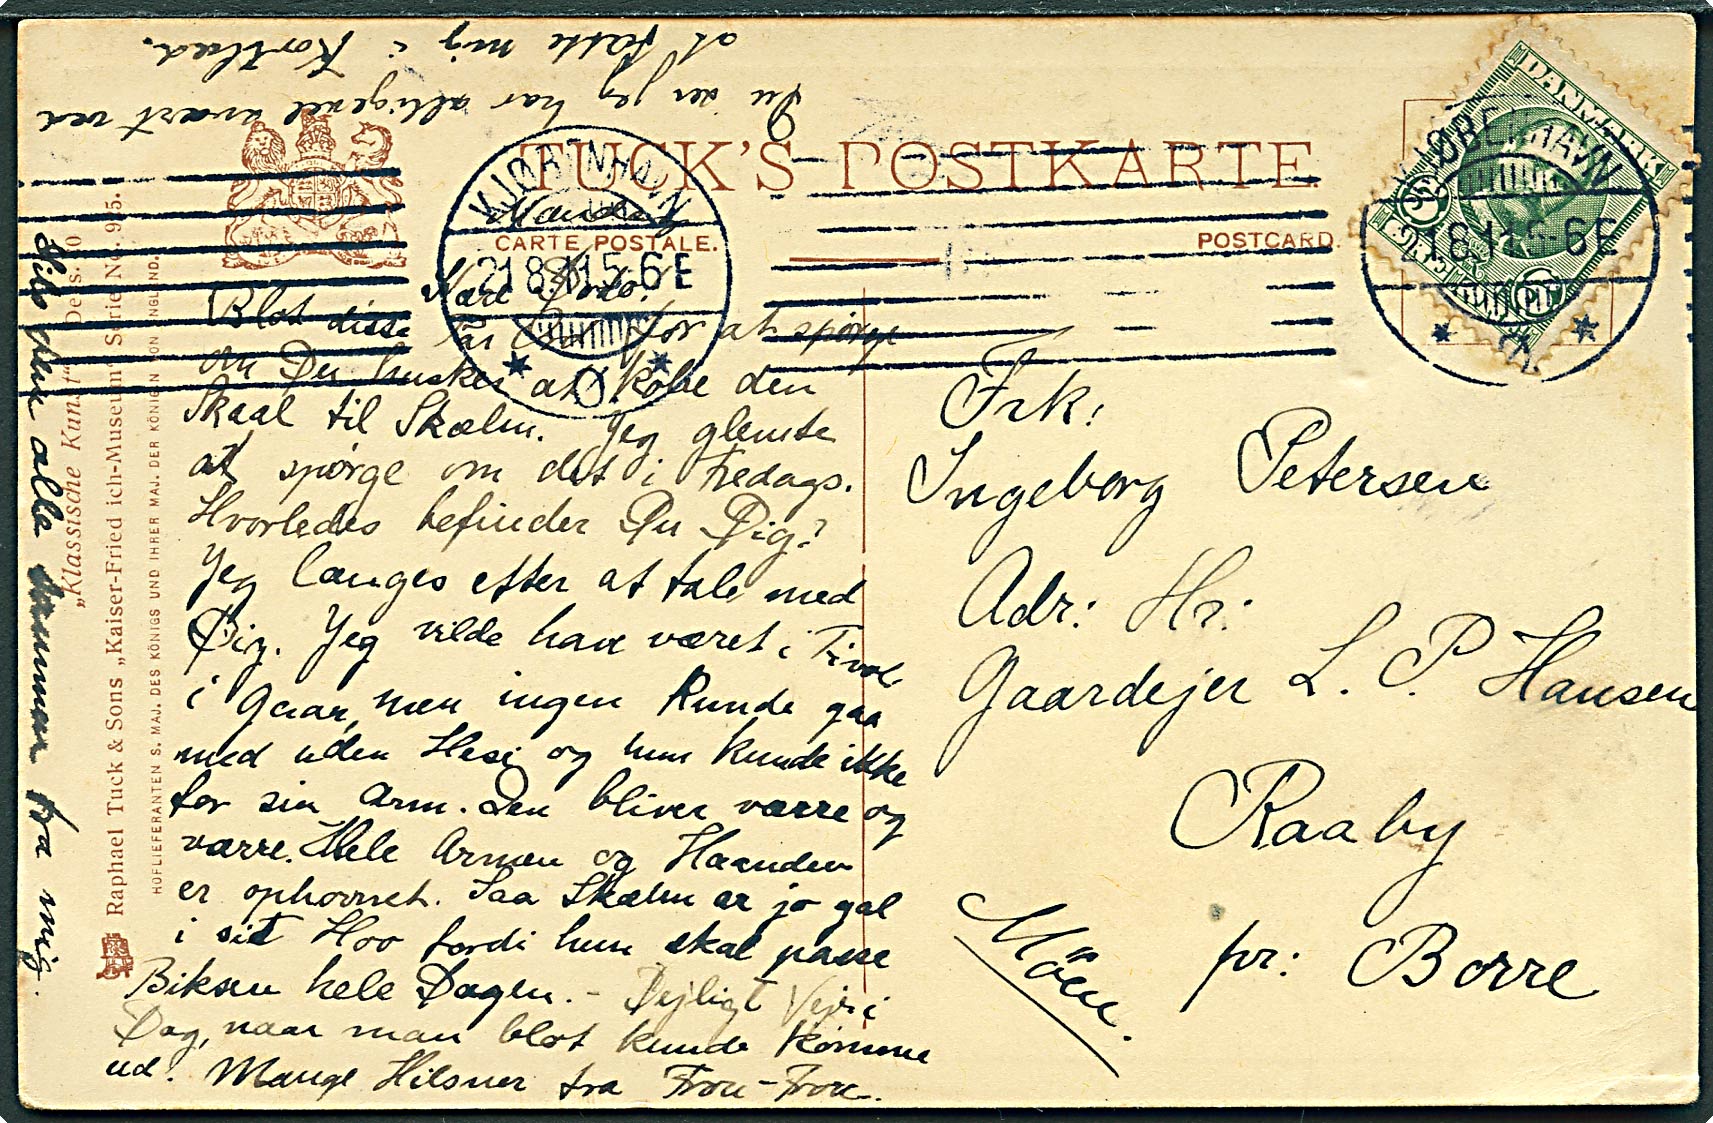 Du ser jeg har alligevel svært ved
at fatte mig i Korthed.
TUCK'S POSTKARTE
CARTE POSTALE.
POSTCARD
KJØBENHAVN
21.8.11.5-6 E
Ø
KJØBENHAVN
21.8.11.5-6 E
DANMARK
Mandag
Kære
Blot disse Par Ord for at spørge
om Du husker at købe den
Skaal til Skælm. Jeg glemte
at spørge om det i Fredags.
Hvorledes befinder Du Dig?
Jeg længes efter at tale med
Dig. Jeg vilde have været i Tivoli
i Gaar, men ingen Kunde gaa
med uden Hesi og hun kunde ikke
for sin Arm. Den bliver værre og
værre. Hele Armen og Haanden
er ophovnet. Saa Skælm er jo gal
i sit Hoo fordi hun skal passe
Biksen hele Dagen. - Dejligt Vejr i
Dag, naar man blot kunde komme
ud. Mange Hilsner fra Frou-Frou.
Hils dem alle sammen fra mig.
Frk:
Ingeborg Petersen
Adr: Hr:
Gaardejer L. P. Hansen
Raaby
pr: Borre
Möen.
„Klassische Kunst" Dess. 10
Raphael Tuck & Sons „Kaiser-Friedrich-Museum" Serie No. 925.
HOFLIEFERANTEN S. MAJ. DES KÖNIGS UND IHRER MAJ. DER KÖNIGIN VON ENGLAND.